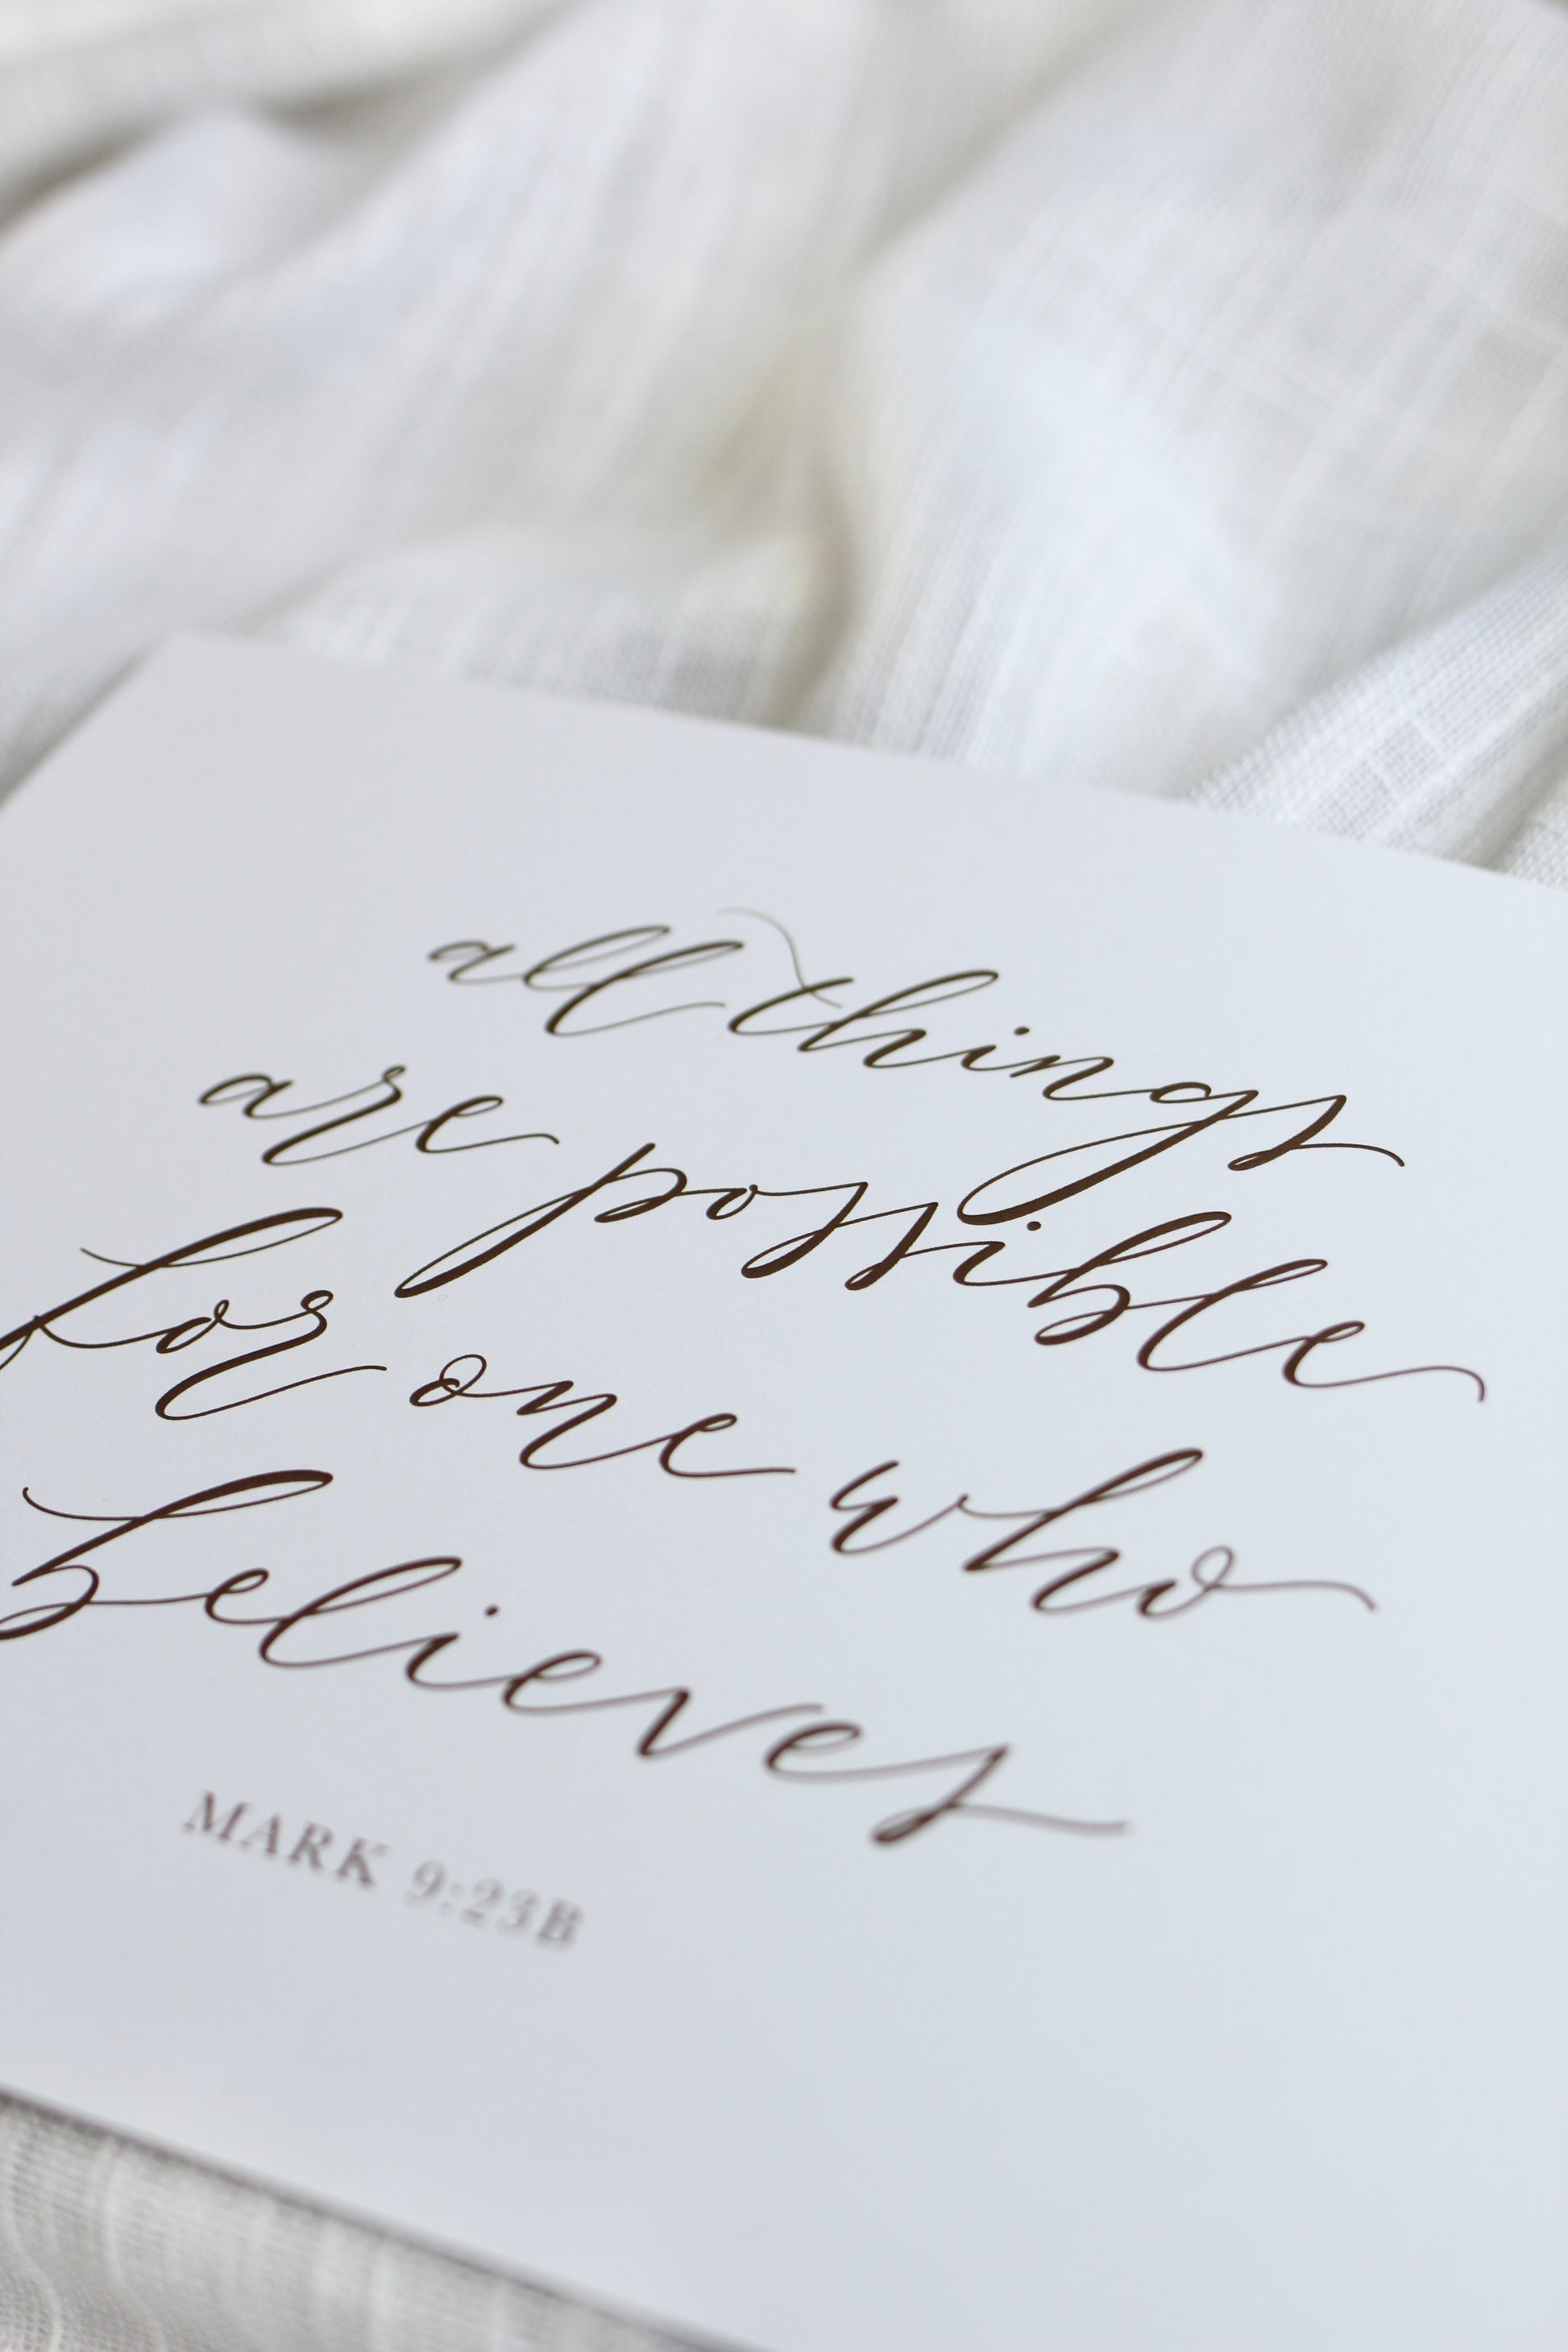 all things
are possible
for one who
believes
MARK 9:23B